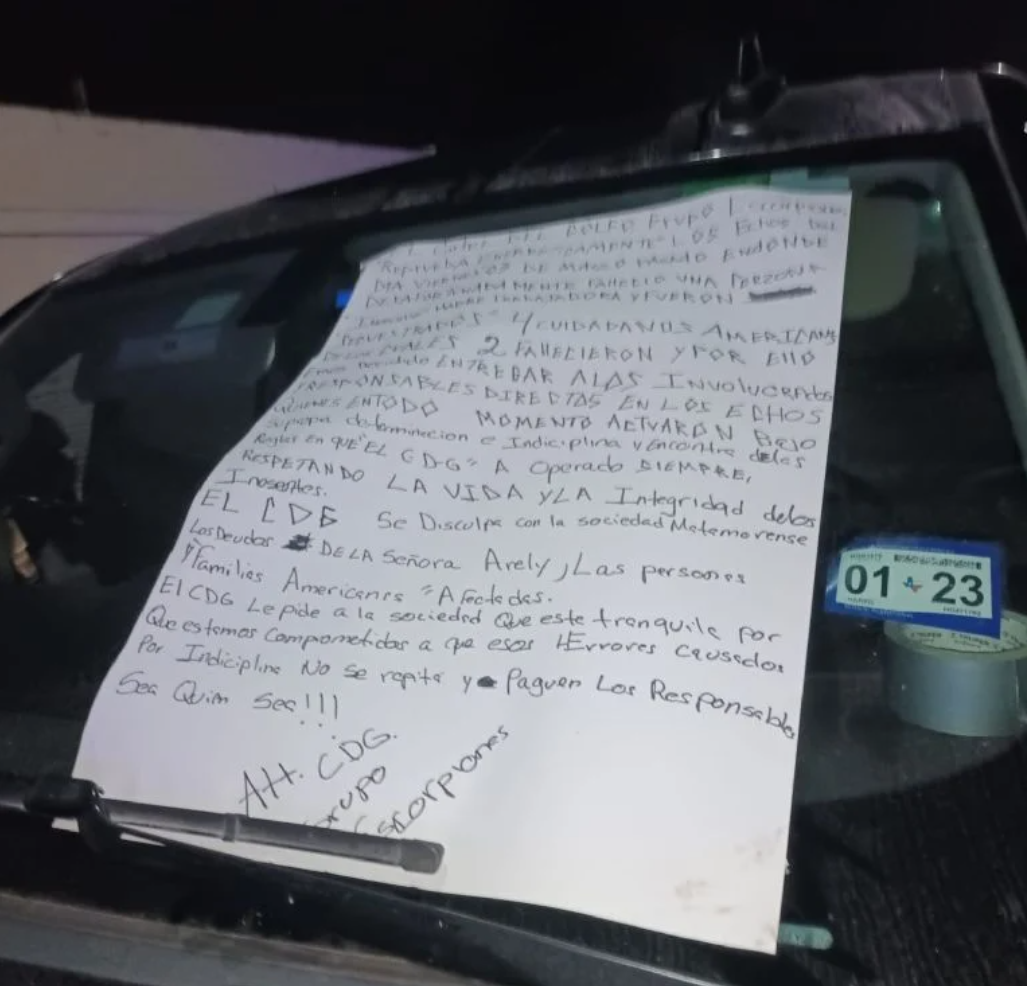 GOLFO Grupo Escorpiones
REPRUEBA ENERGICAMENTE LOS Echos DEL
DIA VIERNES 03 DE MARZO ENDONDE
MENTE FALLECIO UNA PERZONA
MADRE TRABAJADORA Y FUERON
4 CUIDADANOS AMERICANS
2 FALLECIERON Y POR EllO
decidido ENTREGAR A LAS Involucrados
RESPONSABLES DIRECTOS EN LOS ECHOS
QUIENES EN TODO MOMENTO ACTUARON BAJO
su propia determinacion e Indiciplina y encontra delas
Reglas en QUE "EL CDG" A Operado SIEMPRE,
RESPETANDO LA VIDA Y LA Integridad delos
Inosentes.
EL CDG Se Disculpa con la sociedad Matamorense
Los Deudos DE LA Señora Arely, Las personas
y Familias Americanas "Afectadas.
El CDG Le pide a la sociedad Que este tranquila por
Que estamos Comprometidos a que esos Errores causados
Por Indiciplina No se repita y Paguen Los Responsables
Sea Quien Sea!!!
Att. CDG.
Grupo
Escorpiones
01 23